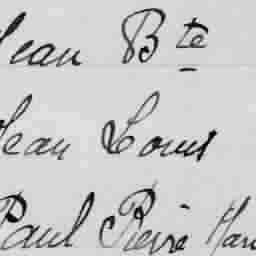 Jean Bte
Jean Louis
Paul Pierre